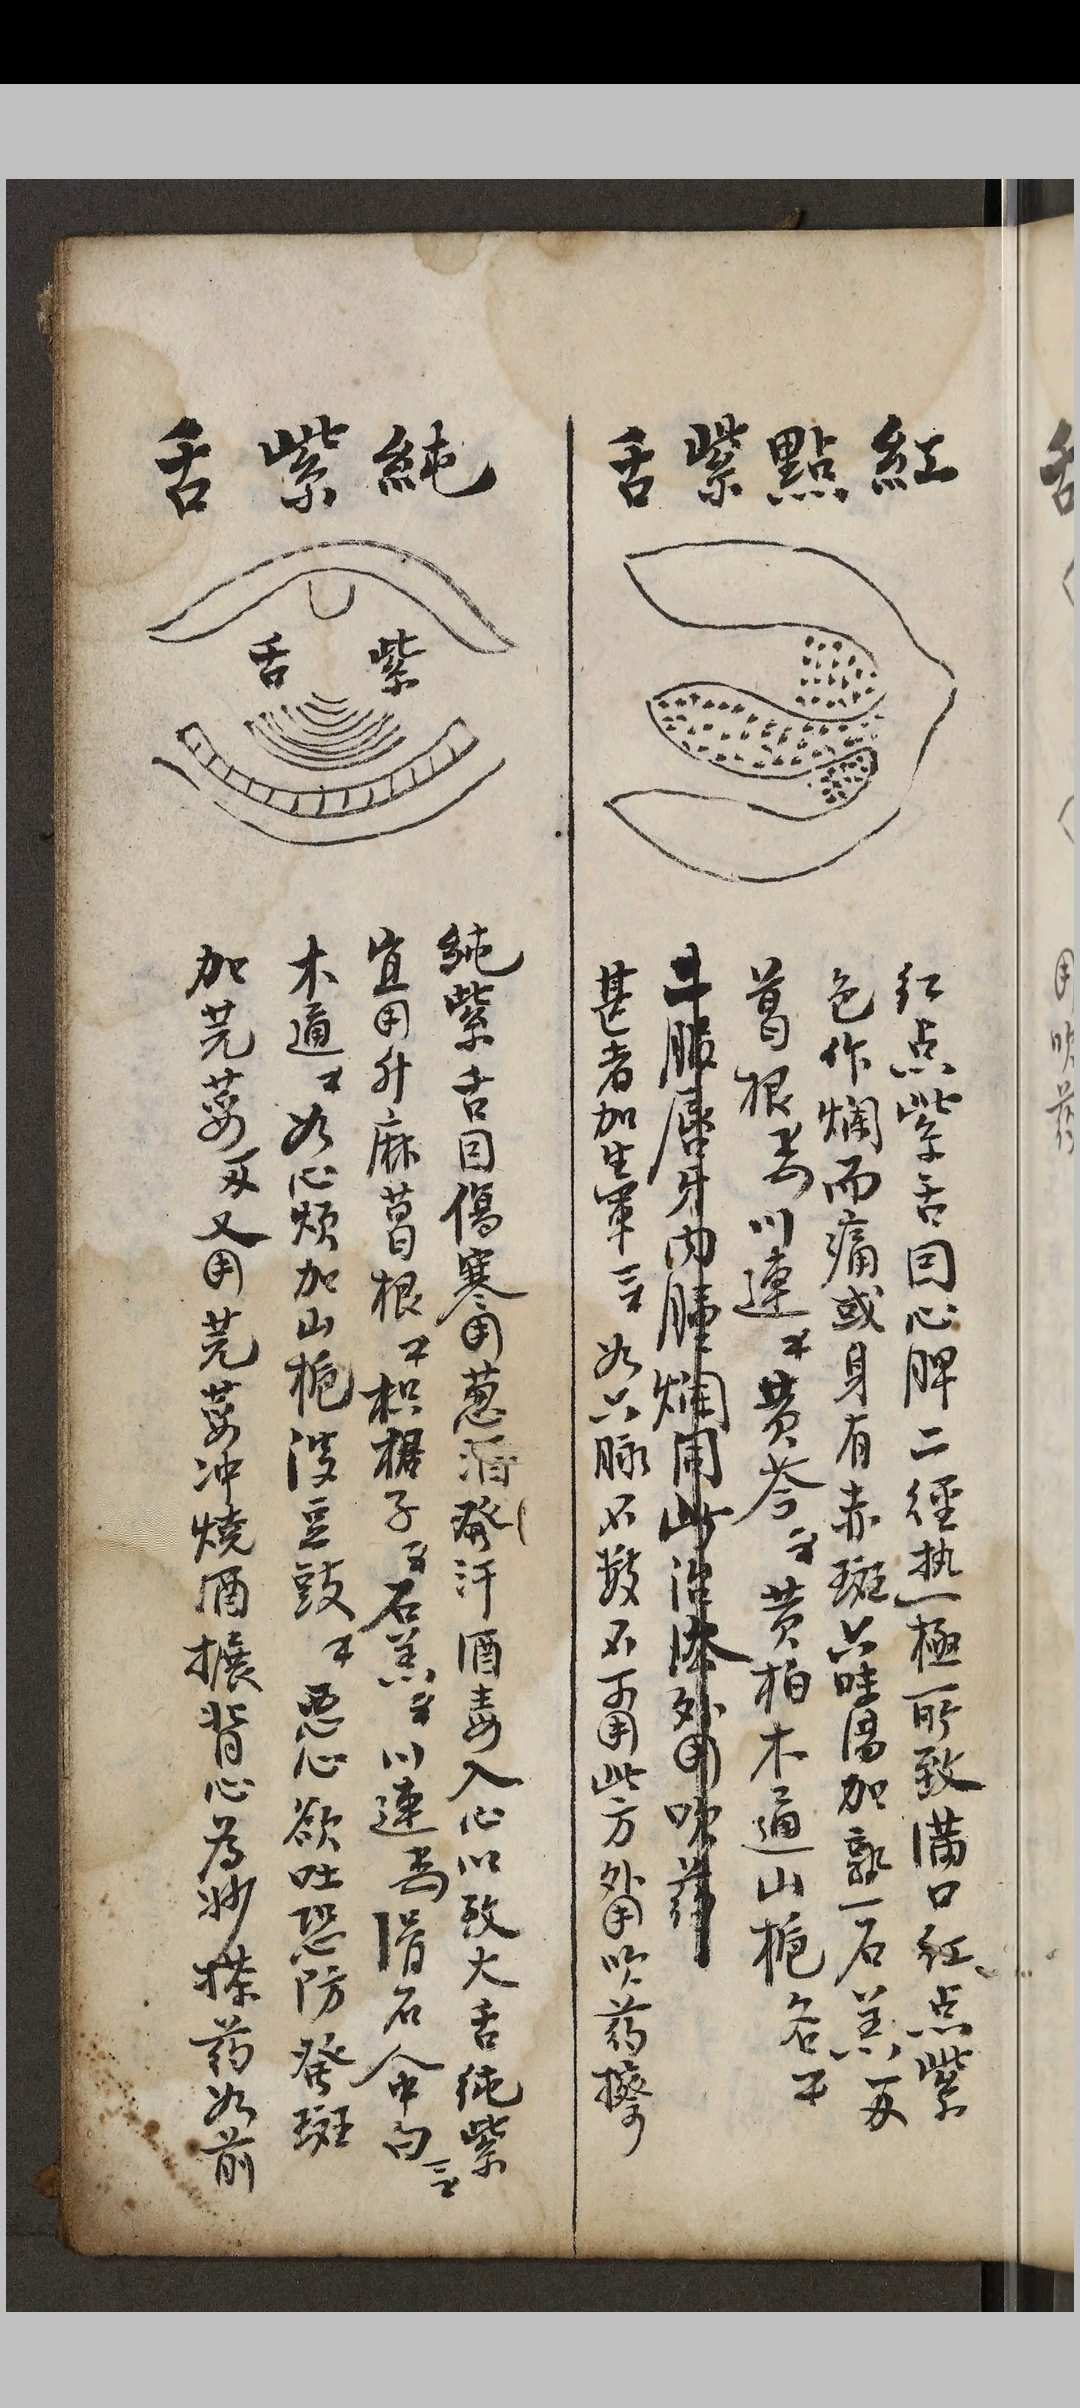 紅點紫舌
红点紫舌因心脾二經热極所致满口红点紫
色作爛而痛或身有赤斑 加 石羔
葛根 川連 黄芩 黄柏木通山栀各
唇牙内腫爛用此治 外用吹药
甚者加生軍 如六脉不数不可用此方外用吹药擦
純紫舌
紫舌
純紫舌因傷寒用葱酒發汗酒毒入心以致大舌純紫
宜用升麻葛根 枳椇子 石羔 川連 滑石 人中白
木通 如心烦加山栀 淡豆豉 恶心欲吐恐防發斑
加芫荽 又用芫荽冲燒酒擦背心為妙搽药如前
用吹药